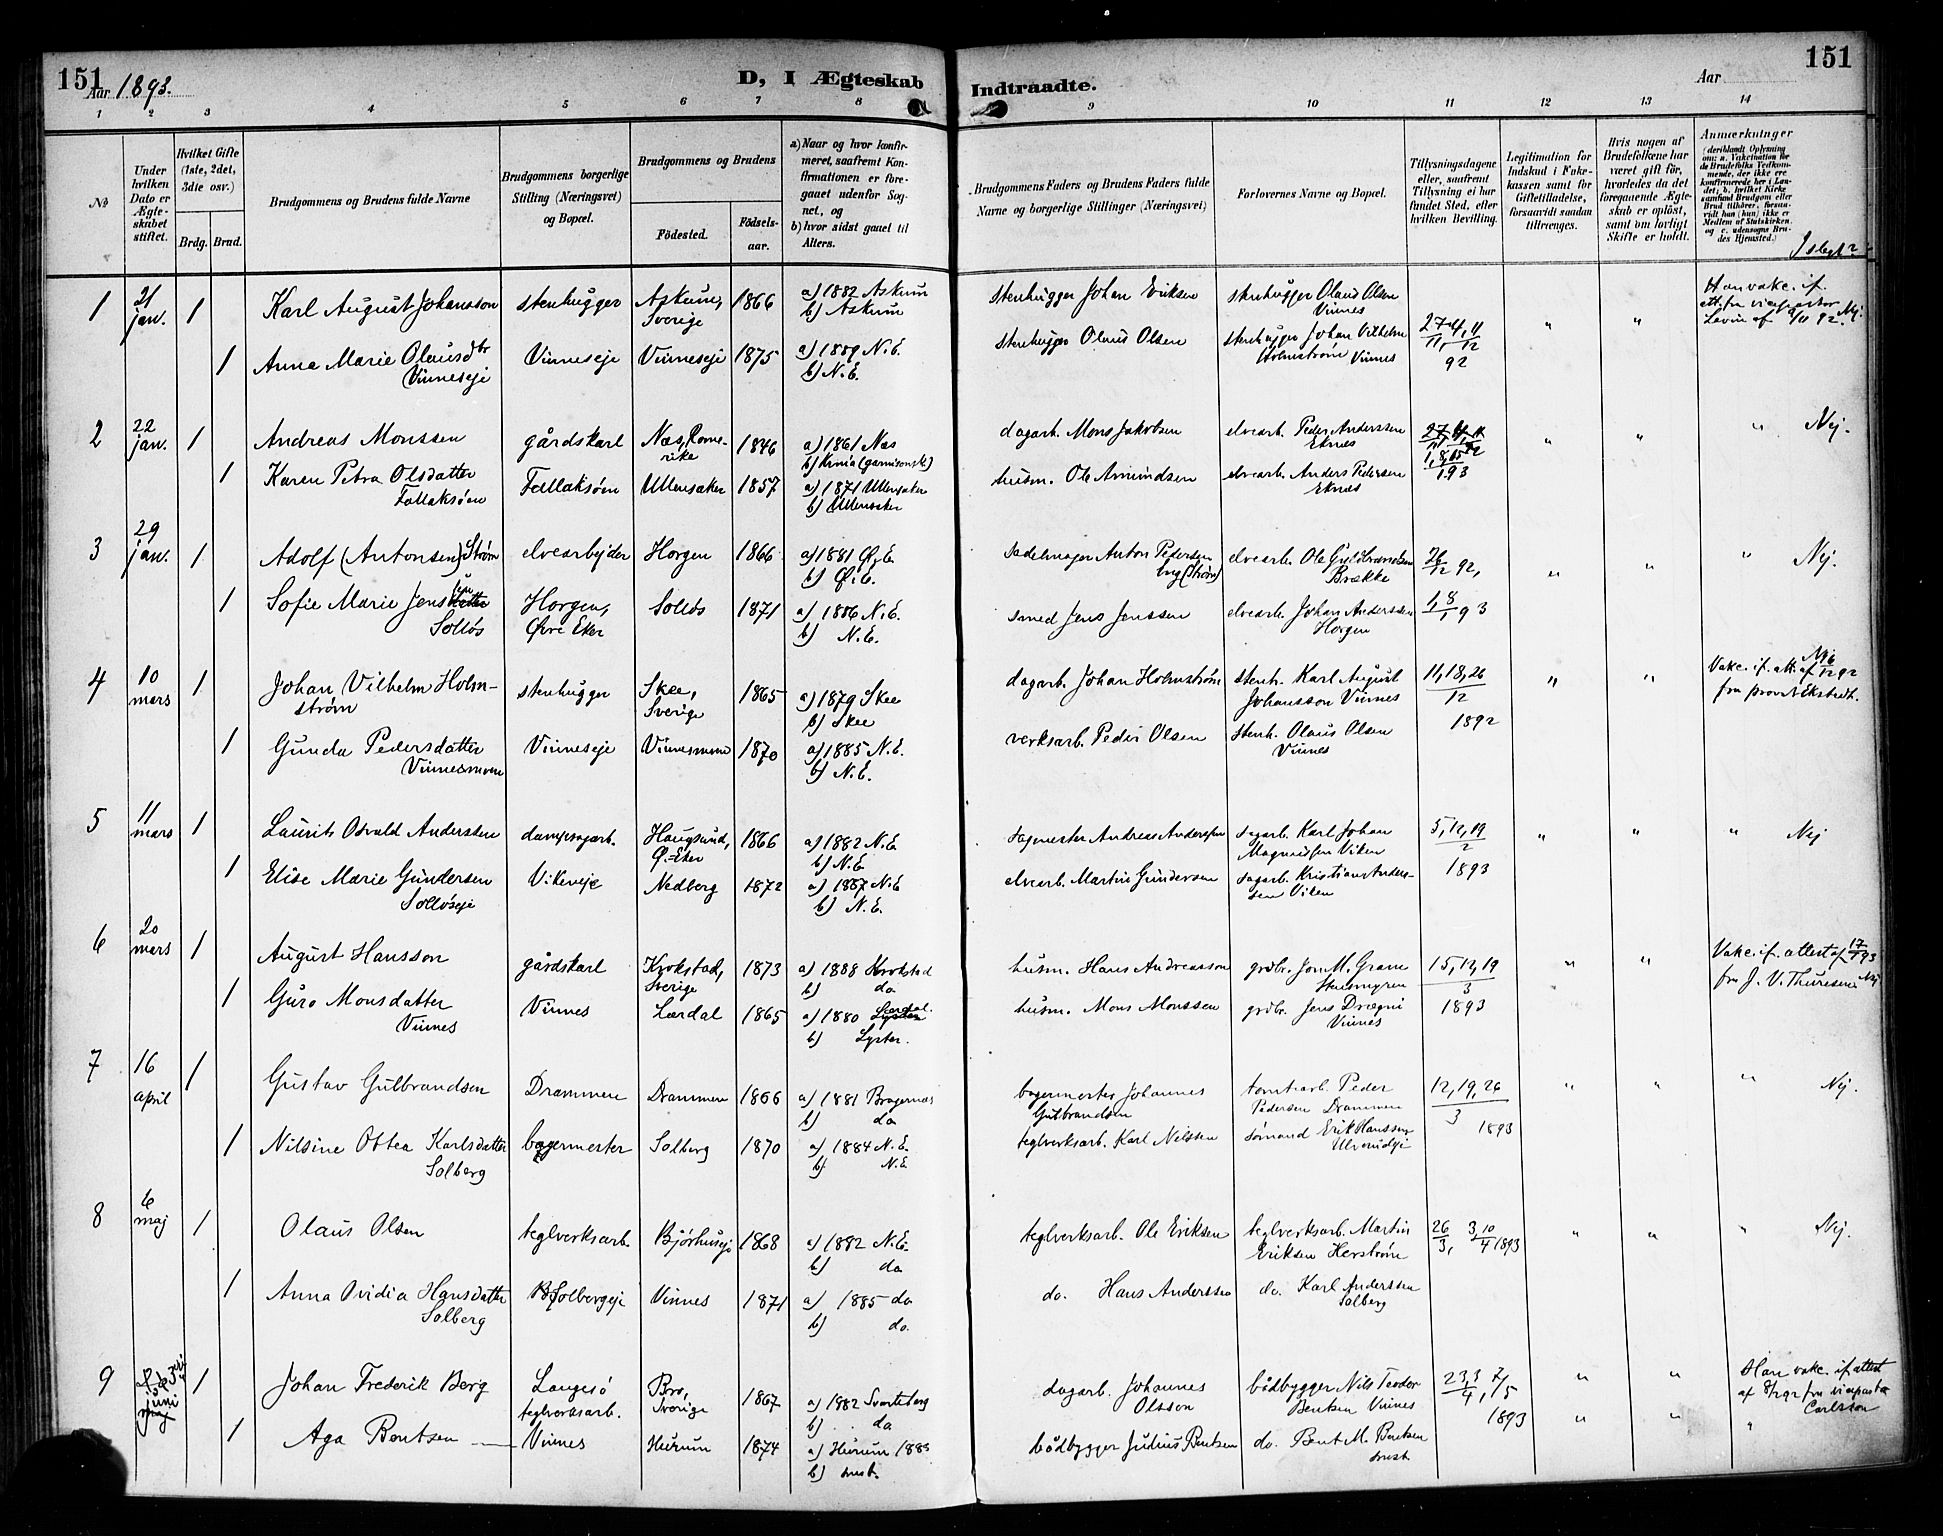 151
Aar 1893.
D, I Ægteskab
Indtraadte.
Aar
151
1 2 3 4 5 6 7 8 9 10 11 12 13 14
№
Under hvilken Dato er Ægteskabet stiftet.
Hvilket Gifte (1ste, 2det, 3die osv.)
Brdg. Brud.
Brudgommens og Brudens fulde Navne
Brudgommens borgerlige Stilling (Næringsvei) og Bopæl.
Brudgommens og Brudens
Fødested.
Fødsels-aar.
a) Naar og hvor konfirmeret, saafremt Konfirmationen er foregaaet udenfor Sognet, og
b) hvor sidst gaaet til Alters.
Brudgommens Faders og Brudens Faders fulde Navne og borgerlige Stillinger (Næringsvei)
Forlovernes Navne og Bopæl.
Tillysningsdagene eller, saafremt Tillysning ei har fundet Sted, efter hvilken Bevilling.
Legitimation for Indskud i Enkekassen samt for Giftetilladelse, forsaavidt saadan tiltrænges.
Hvis nogen af Brudefolkene har været gift før, hvorledes da det foregaaende Ægteskab er opløst, samt om lovligt Skifte er holdt.
Anmærkninger (deriblandt Oplysning om: a. Vakcination for de Brudefolks Vedkommende, der ikke ere konfirmerede her i Landet; b. hvilket Kirkesamfund Brudgom eller Brud tilhører, forsaavidt han (hun) ikke er Medlem af Statskirken, og c. udensogns Brudes Hjemsted.)
I slegt?
1 21 jan. 1 Karl August Johansson stenhugger Askum, Sverige 1866 a) 1882 Askum b) Askum stenhugger Johan Eriksen stenhugger Olaus Olsen Vinnes
Han vakc. if. att. fra vicepastor Levin af 9/11 92. Nej.
1 Anna Marie Olausdtr Vinneseje Vinneseje Vinneseje 1875 a) 1889 N.E. b) N.E. stenhugger Olaus Olsen stenhugger Johan Vilhelm Holmstrøm Vinnes 27/11, 4,11/12 92
2 22 jan. 1 Andreas Monssen gårdskarl Næs, Romerike 1846 a) 1861 Næs b) Krnia (garnisonsk.) dagarb. Mons Jakobsen elvearb. Peder Anderssen Eknæs " " " Nej.
1 Karen Petra Olsdatter Fallaksøen Fallaksøen Ullensaker 1857 a) 1871 Ullensaker b) Ullensaker husm. Ole Amundsen elvearb. Anders Pedersen Eknæs 1,8,15/1 93
3 29 jan. 1 Adolf (Antonsen) Strøm elvearbejder Horgen 1866 a) 1881 Ø.E. b) Ø.E. sadelmager Anton Pedersen (Strøm) elvearb. Ole Guldbrandsen Brække 26/12 92, " " " Nej.
1 Sofie Marie Jens Solløs Horgen, Øvre Eker Solløs 1871 a) 1886 N.E. b) N.E. smed Jens Jenssen elvearb. Johan Anderssen Horgen 1,8/1 93
4 10 mars 1 Johan Vilhelm Holmstrøm stenhugger Skee, Sverige 1865 a) 1879 Skee b) Skee dagarb. Johan Holmstrøm stenh. Karl August Johansson Vinnes 11,18,26/12 1892 " " Vakc. if. att. af /12 92 fra provst Ekstedt. Nej
1 Gunda Pedersdatter Vinnesmoen Vinneseje Vinnesmoen 1870 a) 1885 N.E. b) N.E. verksarb. Peder Olsen stenh. Olaus Olsen Vinnes
5 11 mars 1 Laurits Osvald Anderssen dampsagarb. Haugsund, Ø.-Eker 1866 a) 1882 N.E. b) N.E. sagmester Andreas Anderssen sagarb. Karl Johan Magnussen Viken 5,12,19/2 1893 " " " Nej
1 Elise Marie Gundersen Solløseje Vikeveje Nedberg 1872 a) 1887 N.E. b) N.E. elvearb. Martin Gundersen sagarb. Kristian Anderssen Viken
6 20 mars 1 August Hansson gårdskarl Krokstad, Sverige 1873 a) 1888 Krokstad b) do husm. Hans Andreasson grdbr. Jon M. Gram Stensmyren 5,12,19/3 1893 " " Vakc. if. attest af 17/1 93 fra J. V. Thuresen Nej
1 Guro Monsdatter Vinnes Vinnes Lærdal 1865 a) 1880 Lærdal. b) Lyster. husm. Mons Monssen grdbr. Jens Drægni Vinnes
7 16 april 1 Gustav Gulbrandsen Drammen Drammen 1866 a) 1881 Bragernæs b) do bagermester Johannes Gulbrandsen tomtarb. Peder Pedersen Drammen 12,19,26/3 1893 " " " Nej.
1 Nilsine Ottea Karlsdatter Solberg bagermester Solberg 1870 a) 1884 N.E. b) N.E. teglverksarb. Karl Nilssen sømand Erik Hanssen
8 6 maj 1 Olaus Olsen teglverksarb. Bjørhuseje 1868 a) 1882 N.E. b) do teglverksarb. Ole Eriksen teglverksarb. Martin Eriksen Herstrøm 26/3, 3,10/4 1893 " " " Nej.
1 Anna Ovidia Hansdatter Solberg Solbergeje Vinnes 1871 a) 1885 do b) do. do. Hans Anderssen do. Karl Anderssen Solberg
9 juni 1 Johan Frederik Berg Langesø teglverksarb. Bro, Sverige 1867 a) 1882 Svarteborg b) do dagarb. Johannes Olsson bådbygger Nils Teodor Bentsen Vinnes 23,3/4, 7/5 1893 " " Han vakc. if. attest af 8/2 92 fra vicepastor Carlsson
1 Aga Bentsen Vinnes Hurum 1874 a) Hurum 188 b) smst. bådbygger Julius Bentsen do. Bent M. Bentsen smst. " " "